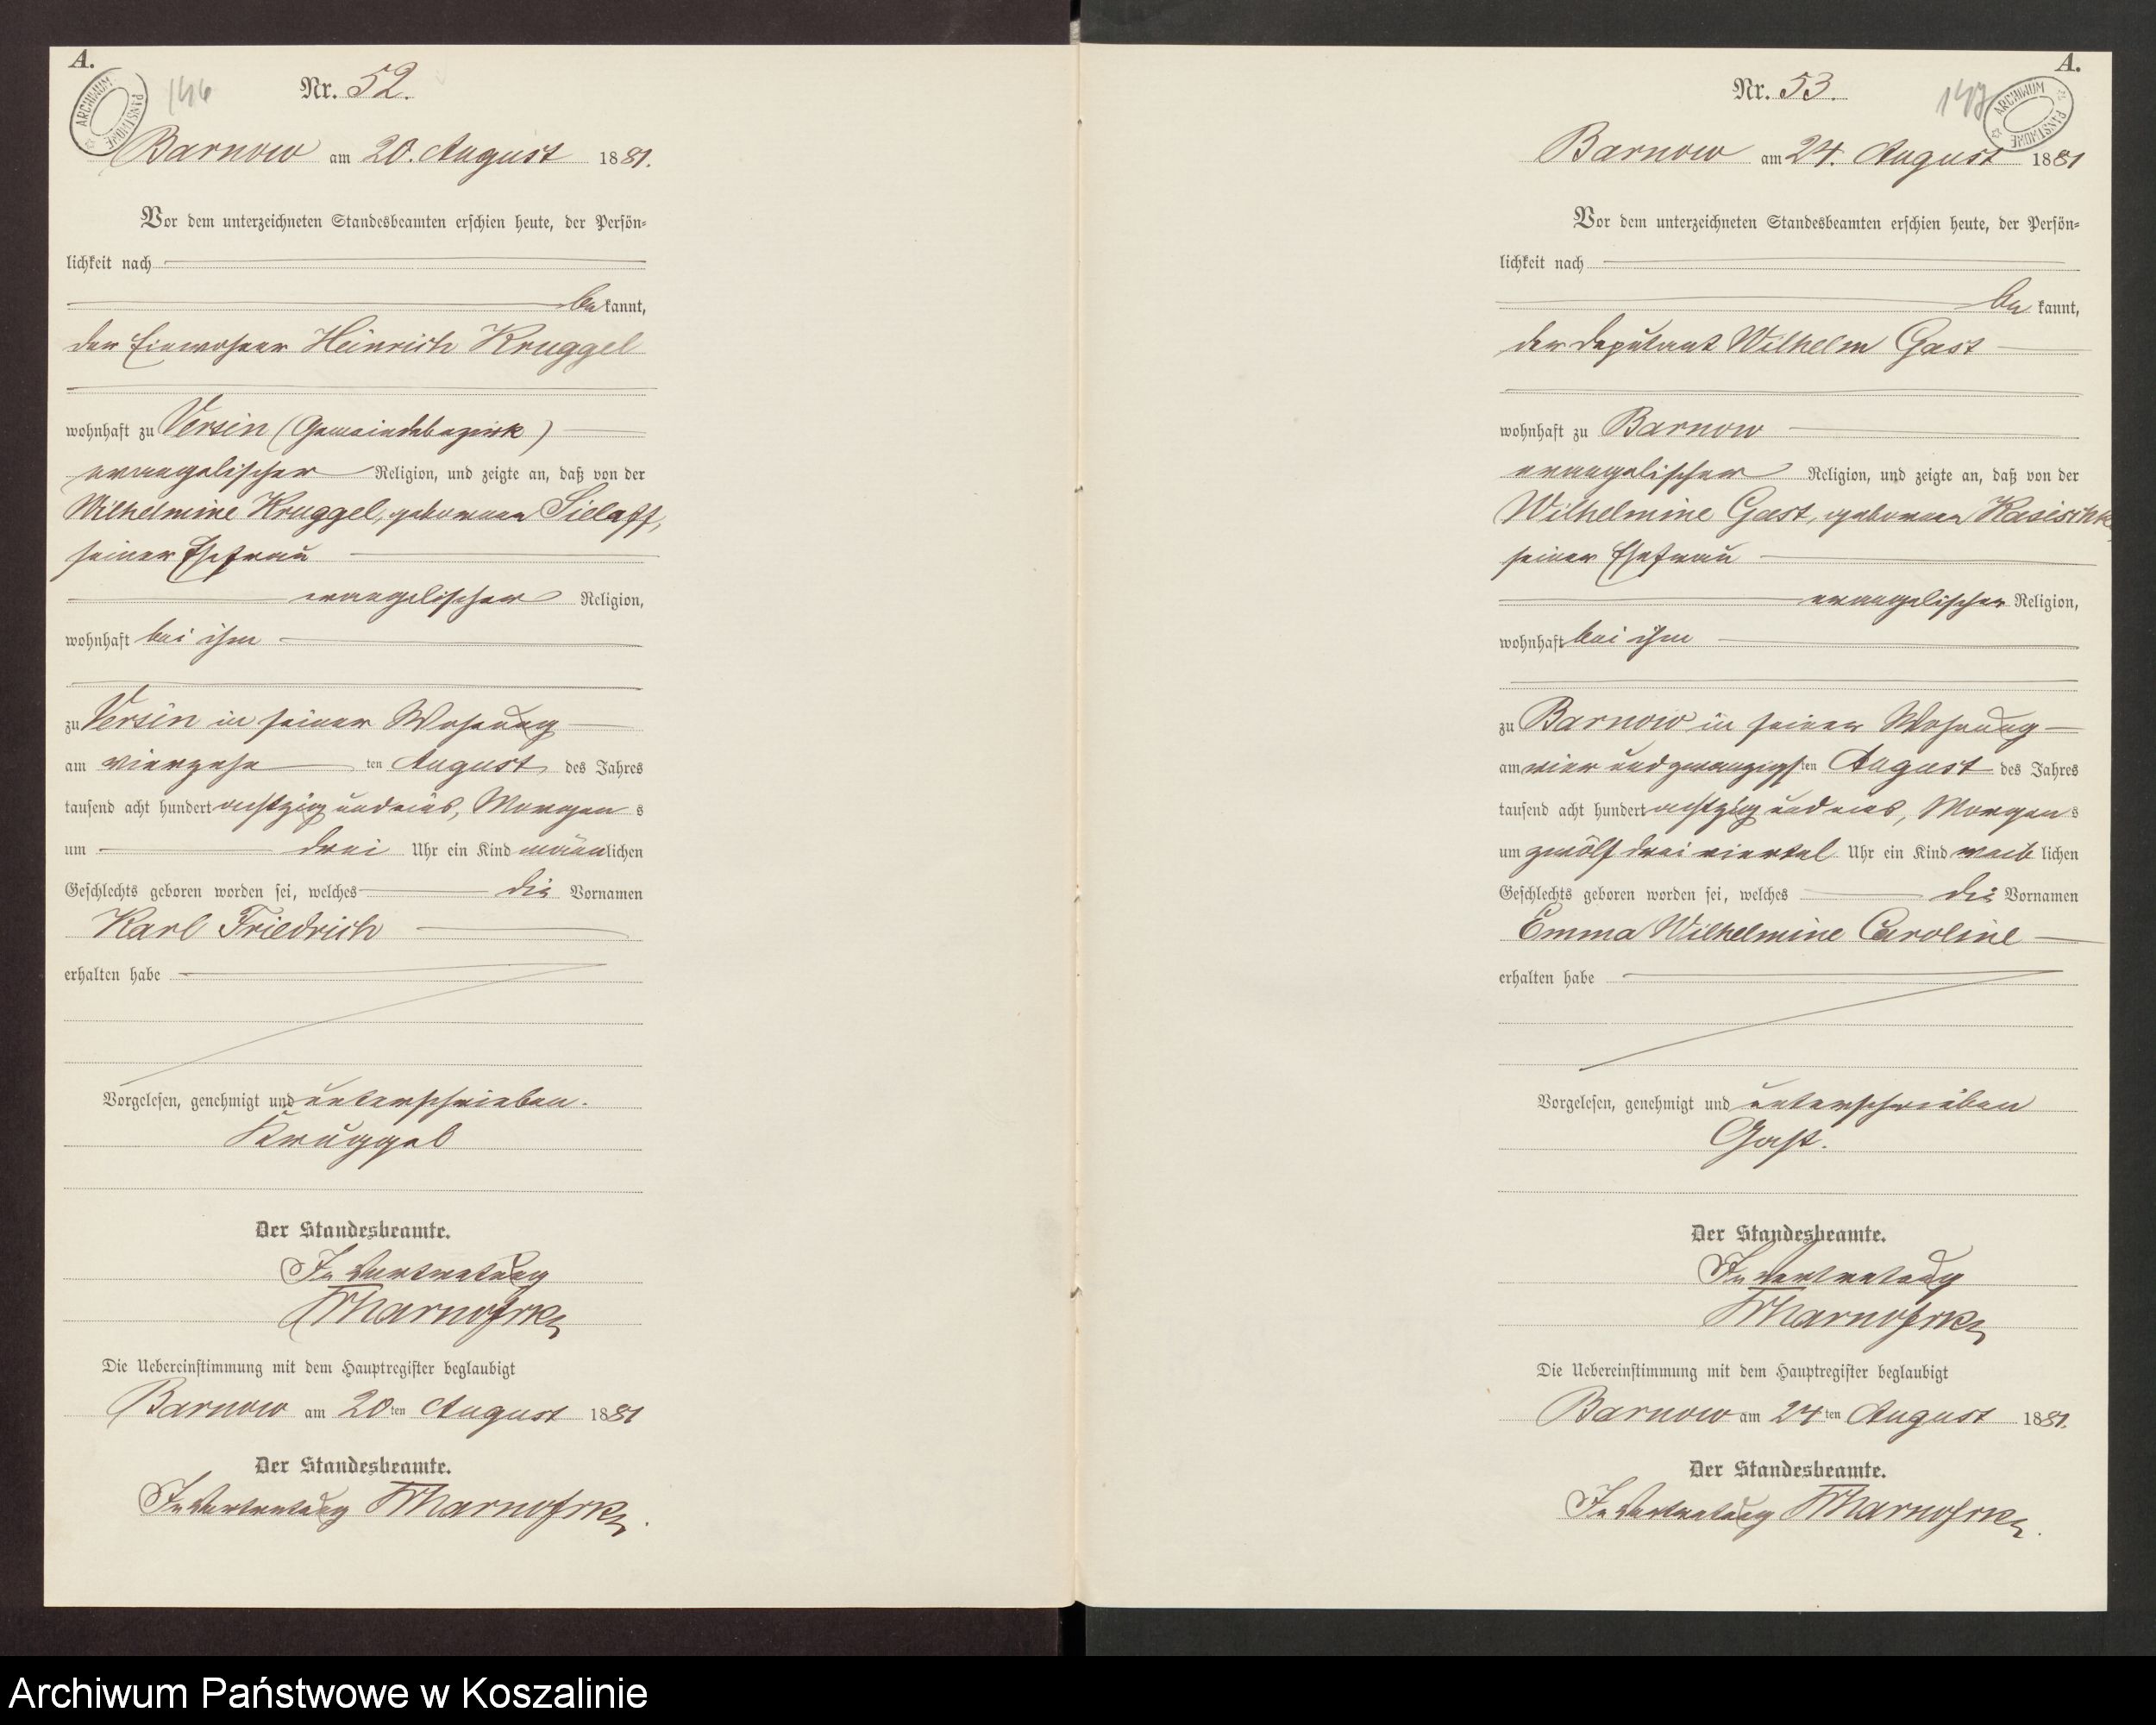 A.
ARCHIWUM PAŃSTWOWE
146
Nr. 52.
Barnow am 20. August 1881.
Vor dem unterzeichneten Standesbeamten erschien heute, der Persön-
lichkeit nach
be kannt,
der Einwohner Heinrich Kruggel
wohnhaft zu Versin (Gemeindebezirk)
evangelischer Religion, und zeigte an, daß von der
Wilhelmine Kruggel, geborenen Sielaff,
seiner Ehefrau
evangelischer Religion,
wohnhaft bei ihm
zu Versin in seiner Wohnung
am vierzehn ten August des Jahres
tausend acht hundert achtzig und eins, Morgen s
um drei Uhr ein Kind männlichen
Geschlechts geboren worden sei, welches die Vornamen
Karl Friedrich
erhalten habe
Vorgelesen, genehmigt und unterschrieben.
Kruggel
Der Standesbeamte.
In Vertretung
Die Uebereinstimmung mit dem Hauptregister beglaubigt
Barnow am 20 ten August 1881
Der Standesbeamte.
In Vertretung
A.
147
ARCHIWUM PAŃSTWOWE
Nr. 53.
Barnow am 24. August 1881
Vor dem unterzeichneten Standesbeamten erschien heute, der Persön-
lichkeit nach
be kannt,
der Deputant Wilhelm Gast
wohnhaft zu Barnow
evangelischer Religion, und zeigte an, daß von der
Wilhelmine Gast, geborenen Kasischke
seiner Ehefrau
evangelischer Religion,
wohnhaft bei ihm
zu Barnow in seiner Wohnung
am vier und zwanzigsten August des Jahres
tausend acht hundert achtzig und eins, Morgen s
um zwölf drei viertel Uhr ein Kind weib lichen
Geschlechts geboren worden sei, welches die Vornamen
Emma Wilhelmine Caroline
erhalten habe
Vorgelesen, genehmigt und unterschrieben
Gast.
Der Standesbeamte.
In Vertretung
Die Uebereinstimmung mit dem Hauptregister beglaubigt
Barnow am 24 ten August 1881.
Der Standesbeamte.
In Vertretung
Archiwum Państwowe w Koszalinie